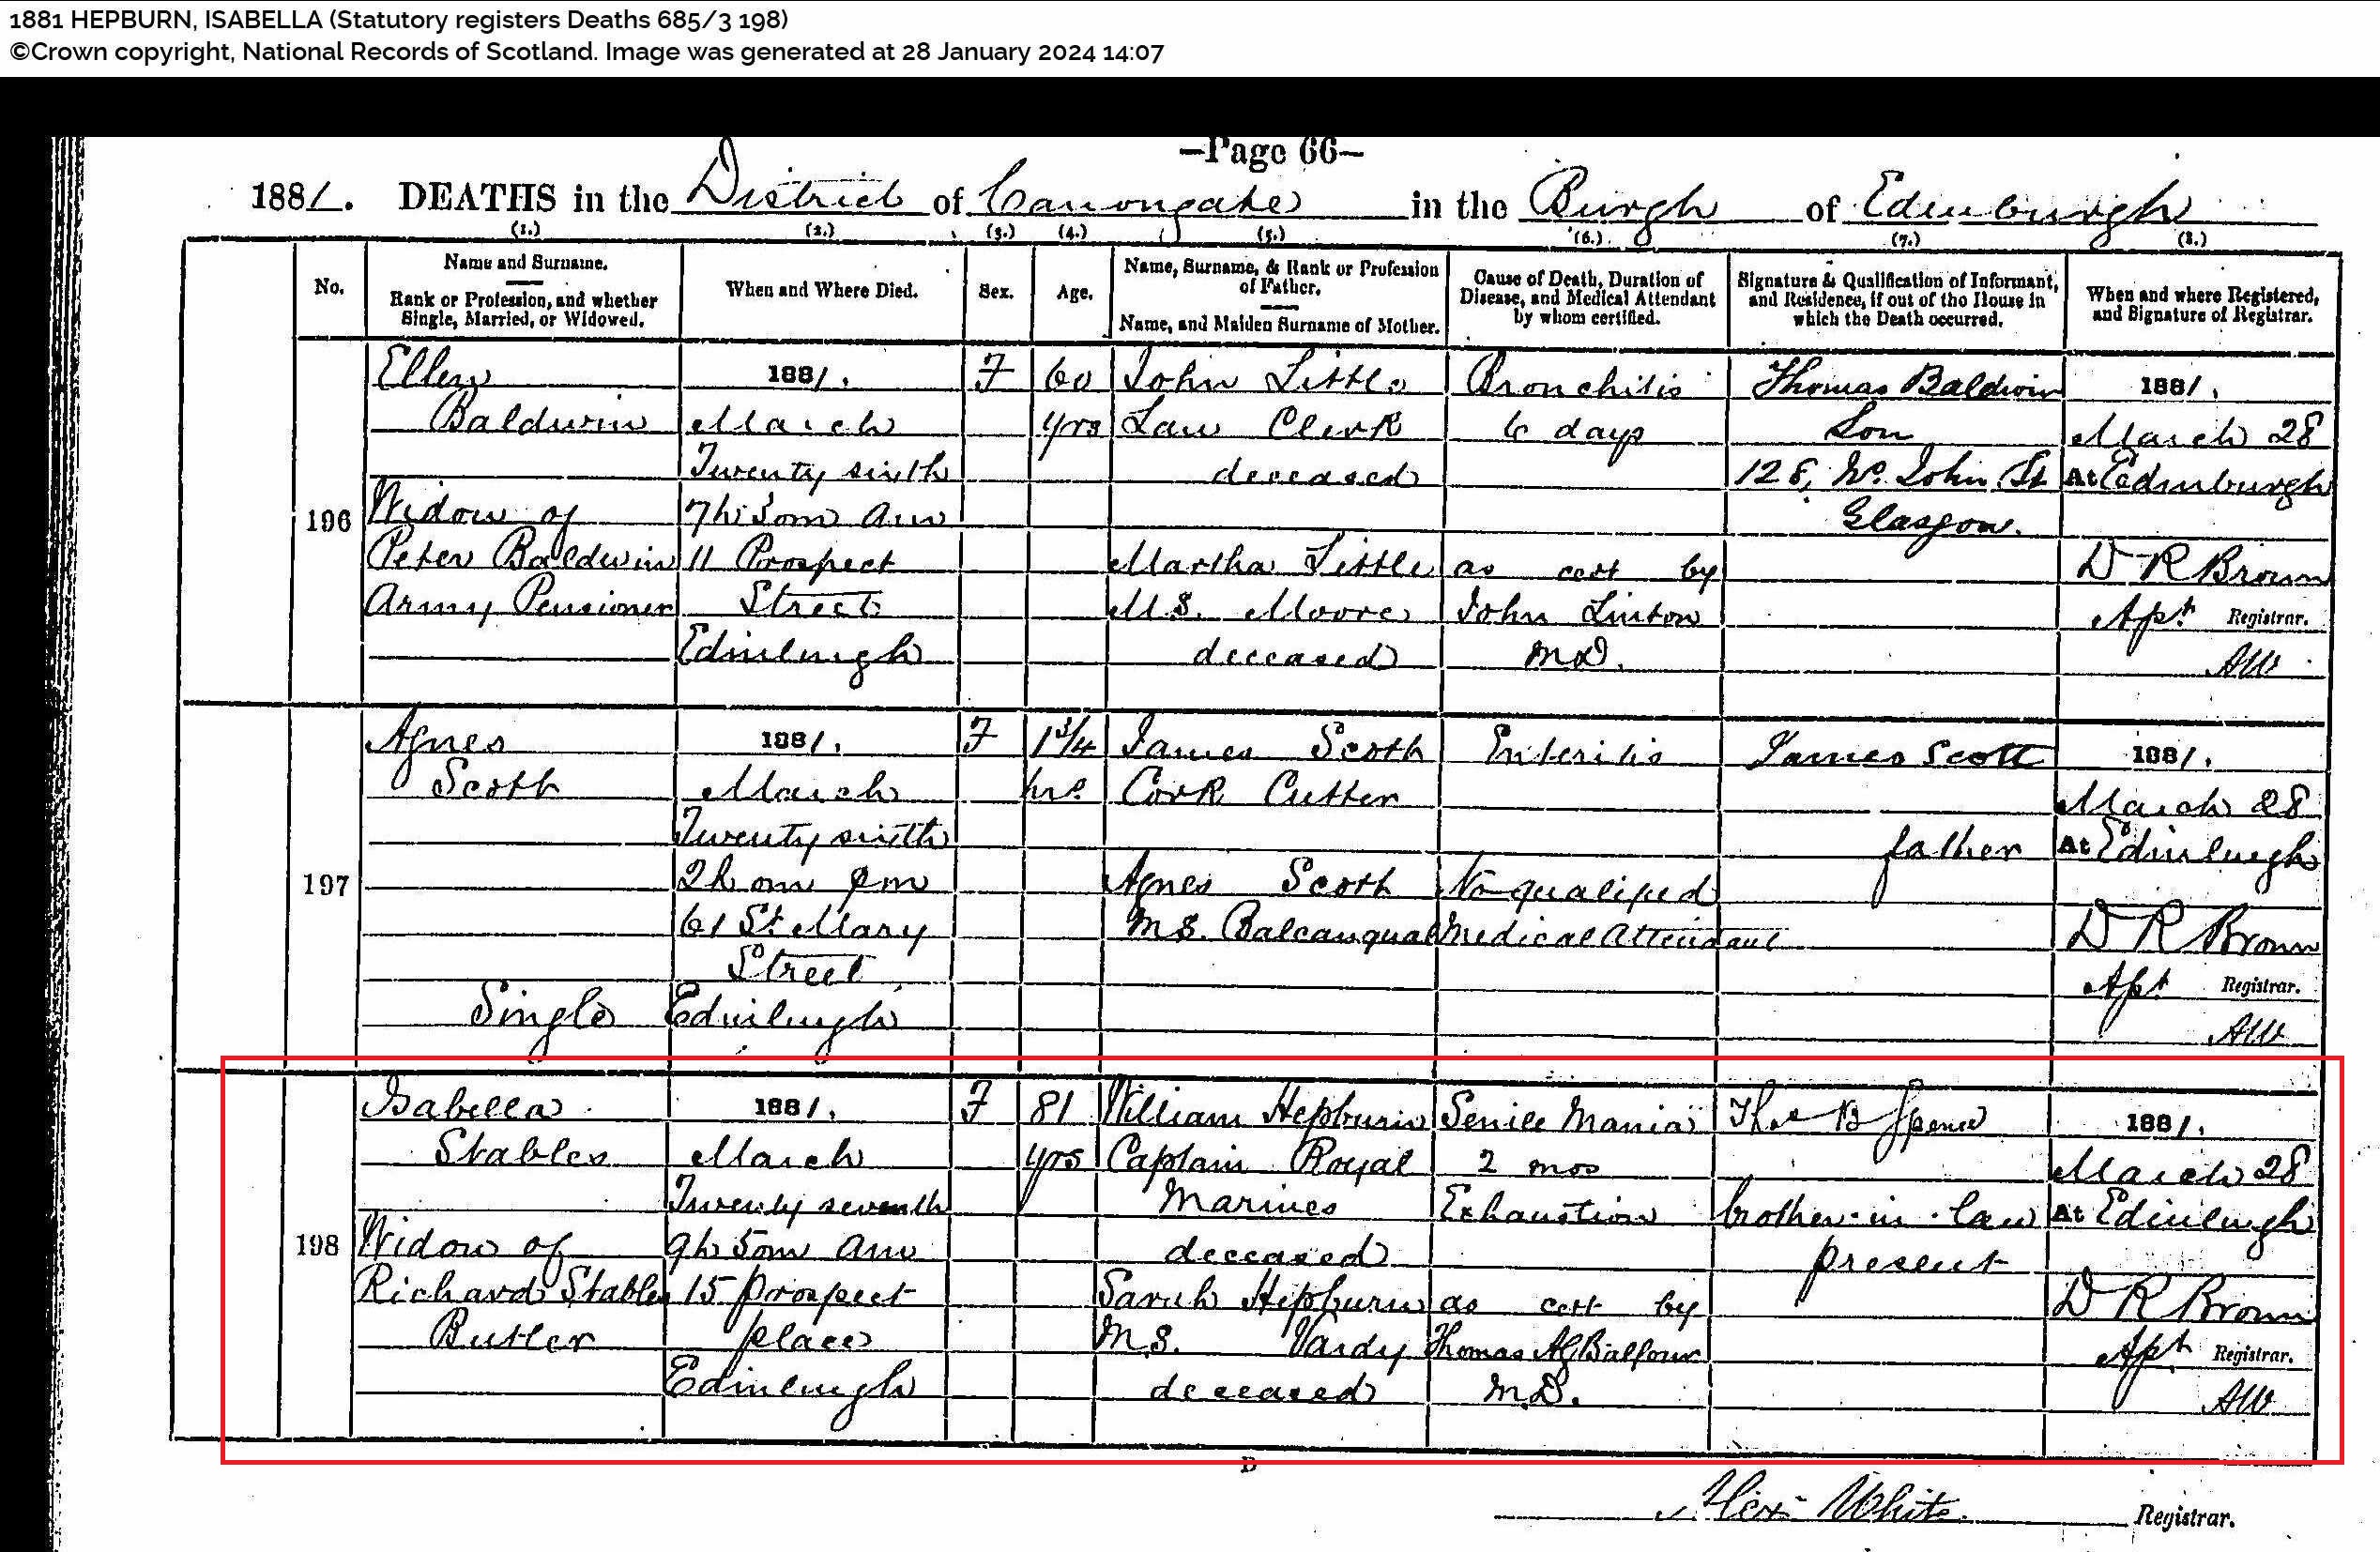 1881 HEPBURN, ISABELLA (Statutory registers Deaths 685/3 198)
©Crown copyright, National Records of Scotland. Image was generated at 28 January 2024 14:07
—Page 66—
1881. DEATHS in the District of Canongate in the Burgh of Edinburgh
(1.) (2.) (3.) (4.) (5.) (6.) (7.) (8.)
No.
Name and Surname.
Rank or Profession, and whether
Single, Married, or Widowed.
When and Where Died.
Sex.
Age.
Name, Surname, & Rank or Profession
of Father.
Name, and Maiden Surname of Mother.
Cause of Death, Duration of
Disease, and Medical Attendant
by whom certified.
Signature & Qualification of Informant,
and Residence, if out of the House in
which the Death occurred.
When and where Registered,
and Signature of Registrar.
196
Ellen
Baldwin
Widow of
Peter Baldwin
Army Pensioner
1881.
March
Twenty sixth
7h 30m am
11 Prospect
Street
Edinburgh
F
60
yrs
John Little
Law Clerk
deceased
Martha Little
M.S. Moore
deceased
Bronchitis
6 days
as cert by
John Linton
M.D.
Thomas Baldwin
Son
128, John St
Glasgow.
1881.
March 28
At Edinburgh
D R Brown
Asst Registrar.
AW
197
Agnes
Scott
Single
1881.
March
Twenty sixth
2h 0m pm
61 St Mary
Street
Edinburgh
F
1 3/4
hrs
James Scott
Cork Cutter
Agnes Scott
M.S. Balcanqual
Enteritis
No qualified
Medical Attendant
James Scott
father
1881.
March 28
At Edinburgh
D R Brown
Asst Registrar.
AW
198
Isabella
Stables
Widow of
Richard Stables
Butler
1881.
March
Twenty seventh
9h 50m am
15 Prospect
place
Edinburgh
F
81
yrs
William Hepburn
Captain Royal
Marines
deceased
Sarah Hepburn
M.S. Vardy
deceased
Senile Mania
2 mos
Exhaustion
as cert by
Thomas AG Balfour
M.D.
Thos B Spence
brother-in-law
present
1881.
March 28
At Edinburgh
D R Brown
Asst Registrar.
AW
B
Alexr White. Registrar.